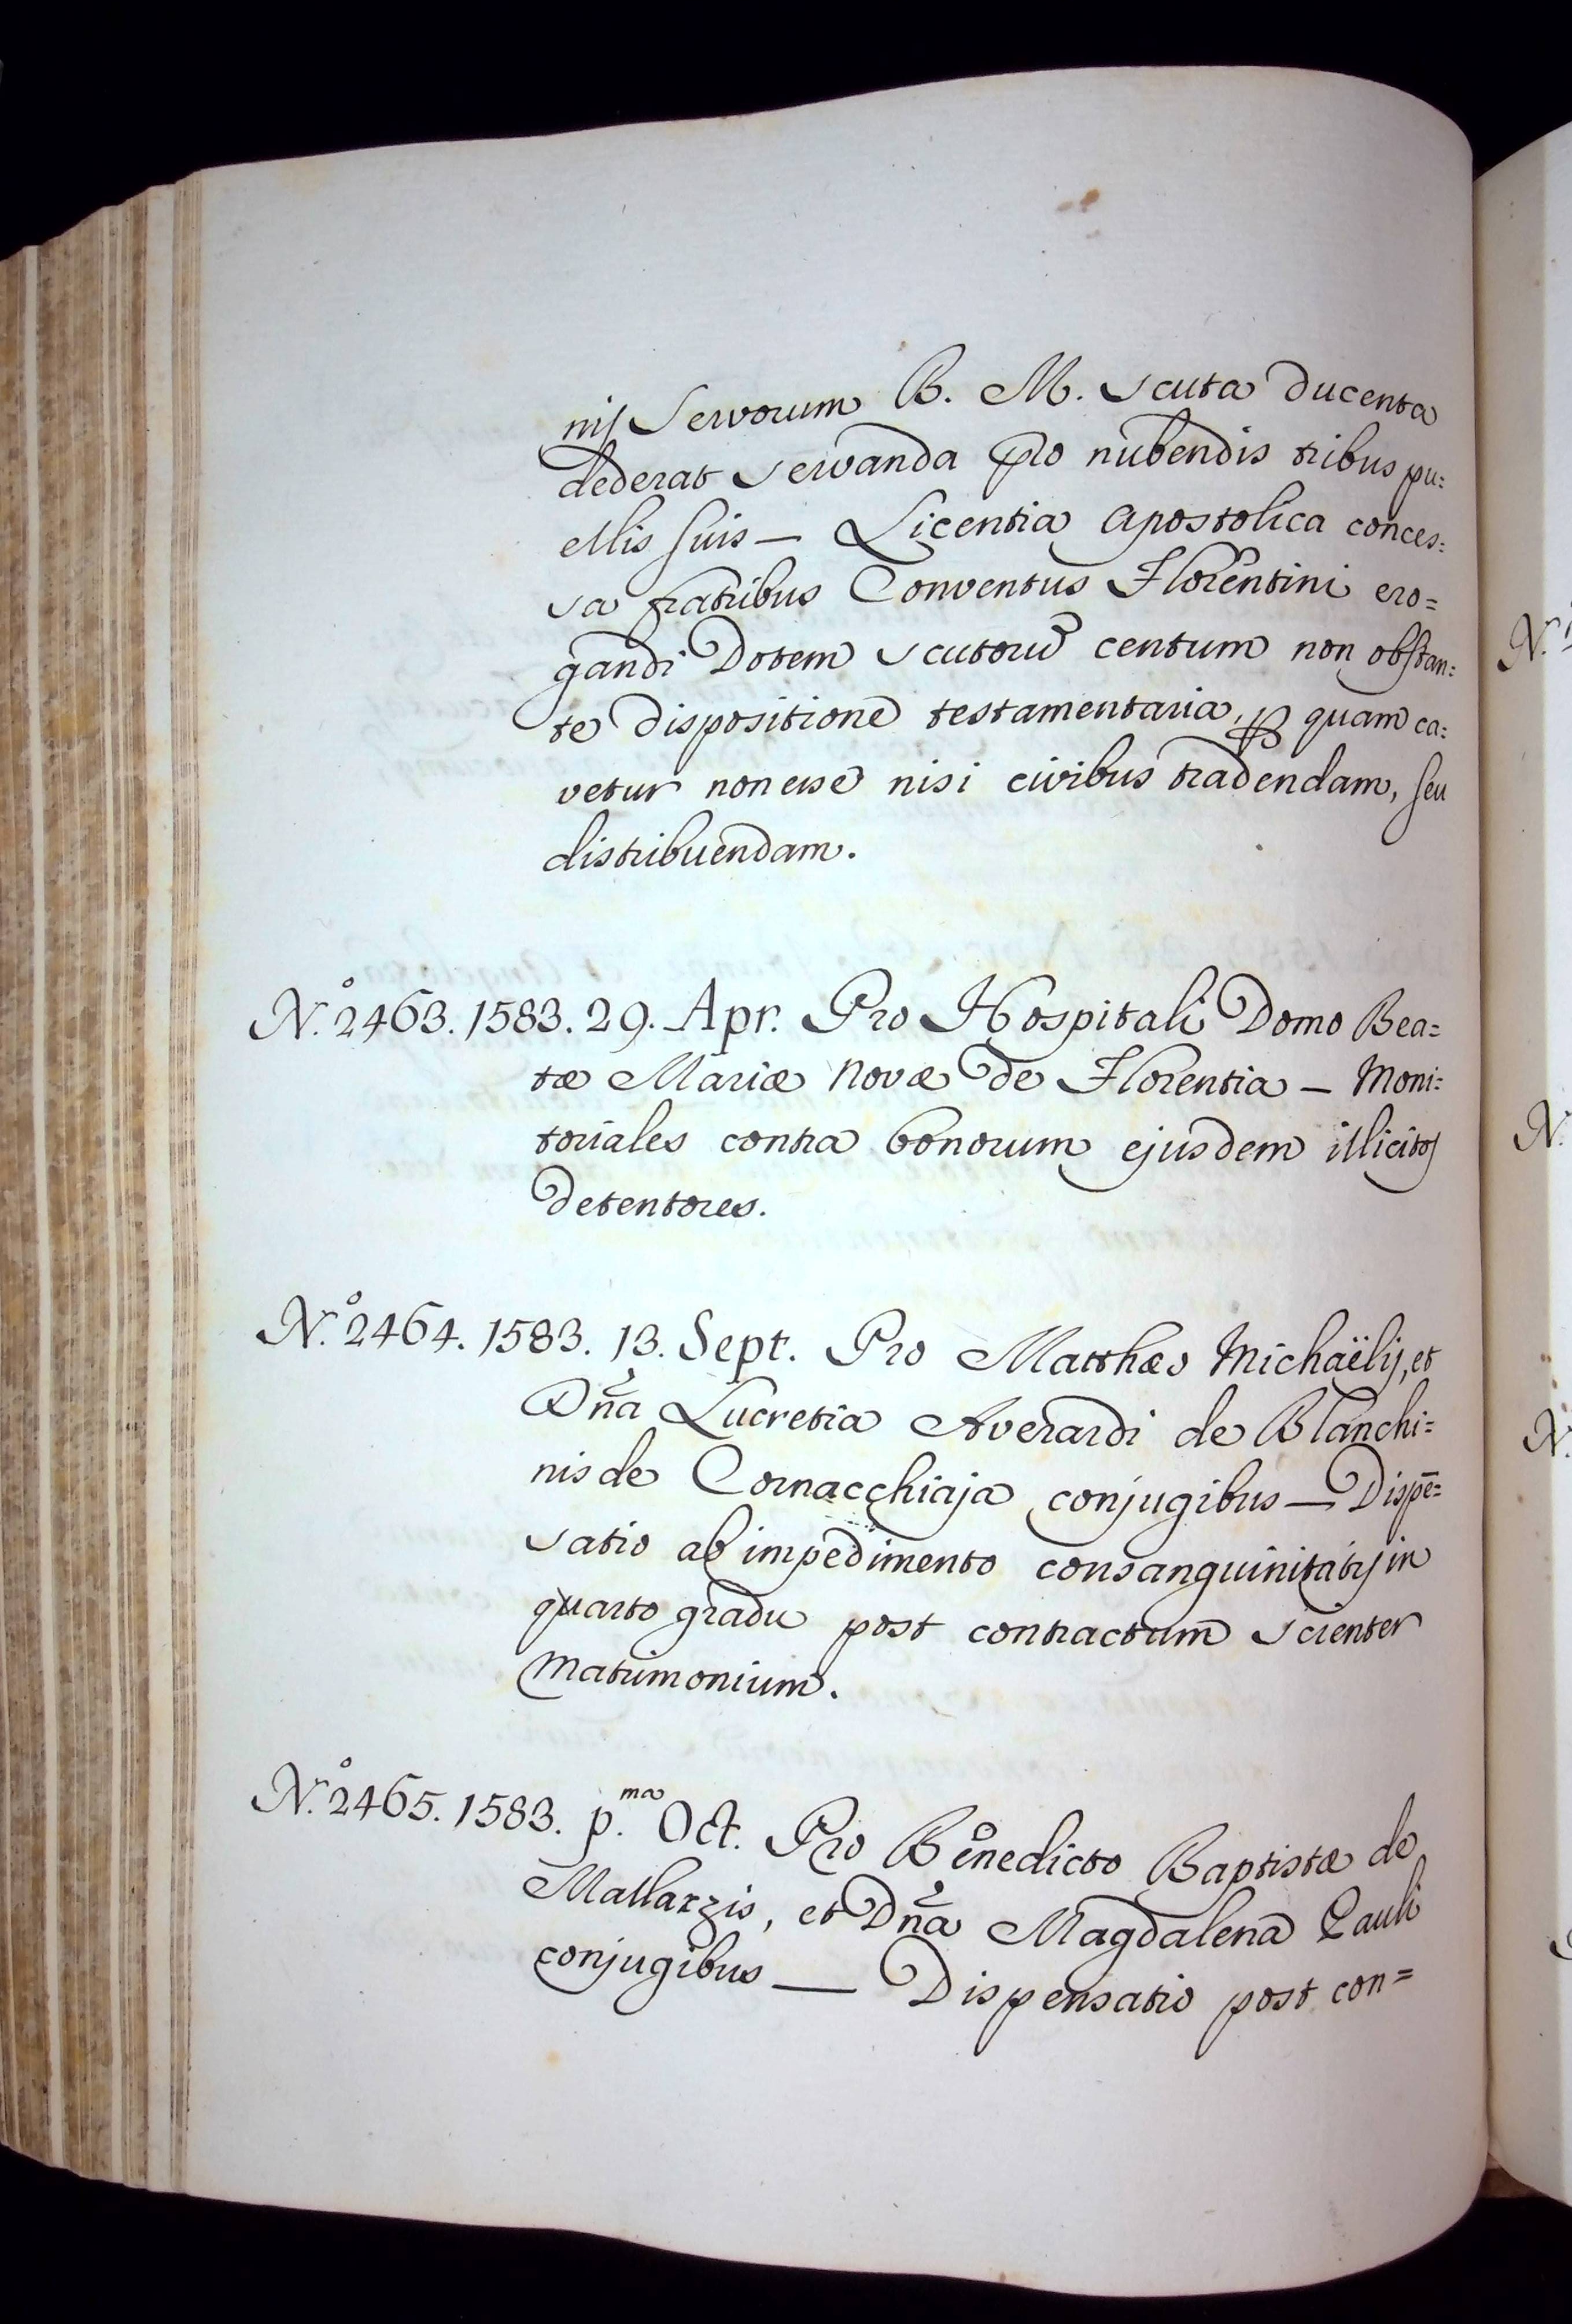 nis Servorum B. M. scuta ducenta
dederat servanda pro nubendis tribus pu=
ellis suis — Licentia Apostolica conces=
sa fratribus Conventus Florentini ero=
gandi Dotem scutorũ centum non obstan=
te dispositione testamentaria, ꝑ quam ca=
vetur non esse nisi civibus tradendam, seu
distribuendam.
N.º 2463. 1583. 29. Apr. Pro Hospitali Domo Bea=
tæ Mariæ Novæ de Florentia — Moni=
toriales contra bonorum ejusdem illicitos
Detentores.
N.º 2464. 1583. 13. Sept. Pro Matthæo Michaëlis, et
Dña Lucretia Averardi de Blanchi=
nis de Cornacchiaja conjugibus — Dispē=
satio ab impedimento consanguinitatis in
quarto gradu post contractum scienter
Matrimonium.
N.º 2465. 1583. p.ma Oct. Pro Benedicto Baptistæ de
Mallarzis, et Dña Magdalena Pauli
conjugibus — Dispensatio post con=
N.
N.
N.